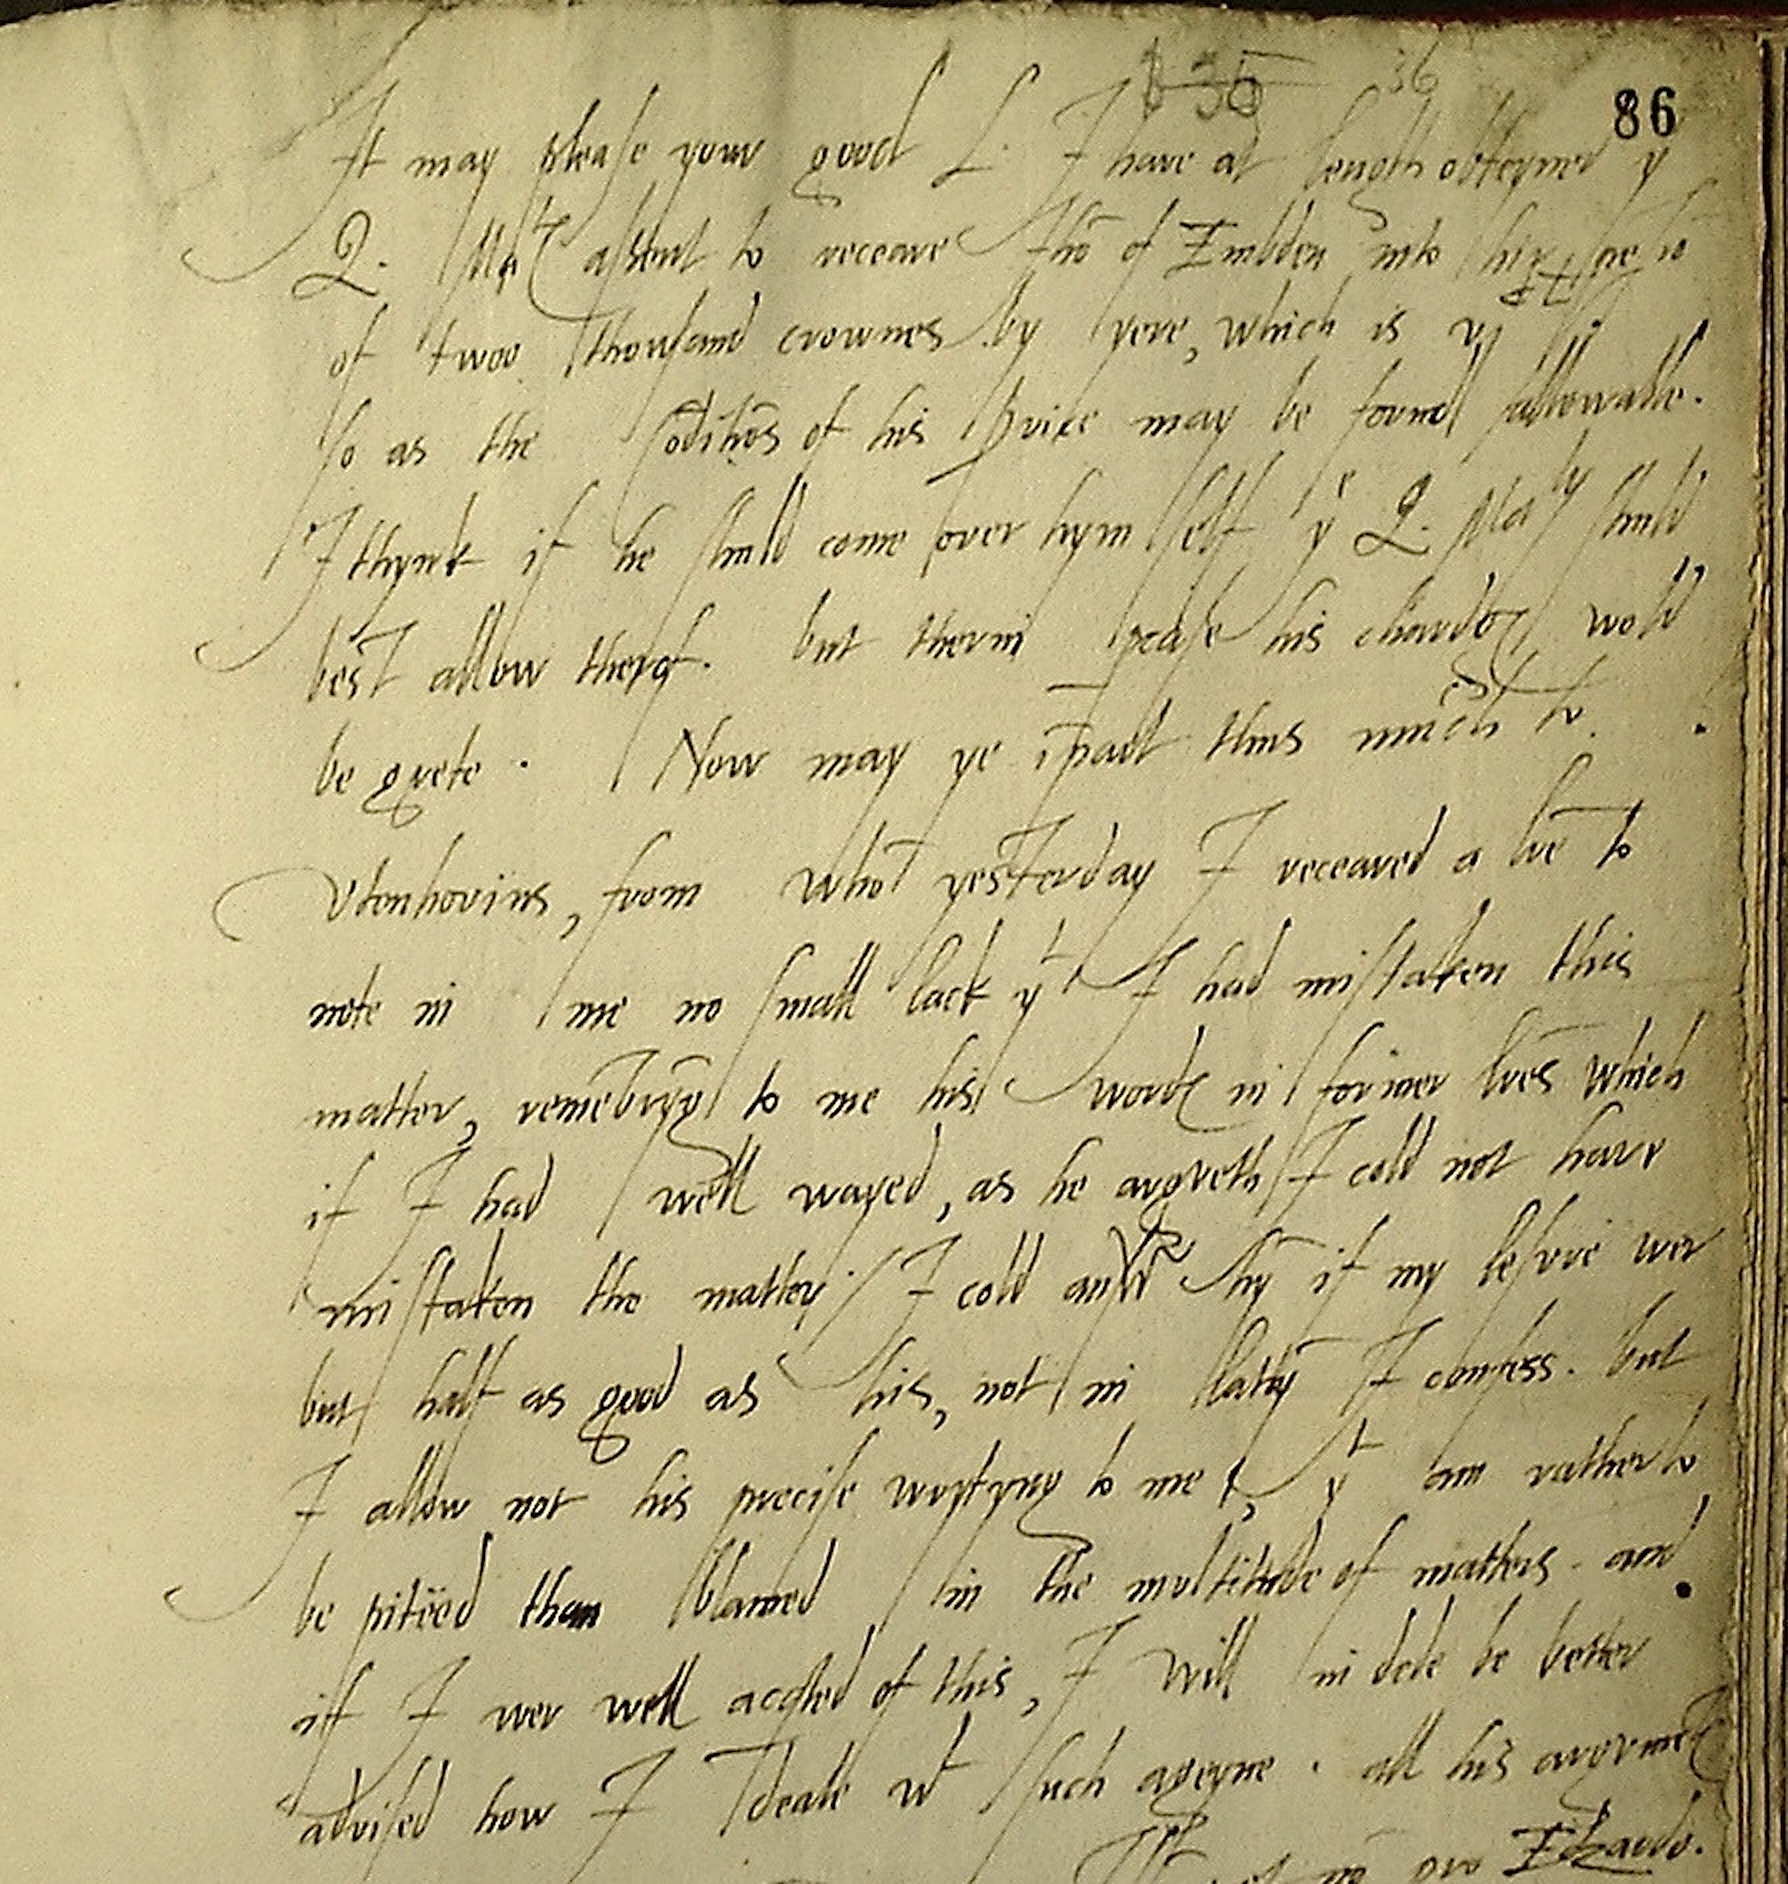 36 36
86
It may please your good L. I have at length obteyned yᵉ
Q. Maᵗⁱᵉˢ assent to receave thō of Embden into hir
of twoo thowsand crownes by yere, which is vj
so as the cōditiōs of his service may be found allowable.
I thynk if he shuld come over hym self yᵉ Q. Maᵗʸ shuld
best allow therof. but therin pcase his chardg wold
be grete. Now may ye īpart thus much to
Vtenhovius, from whō yesterday I receaved a lrē to
note in me no small lack yᵗ I had mistaken this
matter, remēbryg to me his words in former lrēs which
if I had well wayed, as he argveth I cold not have
mistaken the matter. I cold answʳ hȳ if my lesure wer
but half as good as his, not in latȳ I confess. but
I allow not his precise wrytyng to me, yᵗ am rather to
be pitëed than blamed in the multitude of matters. and
if I wer well acqted of this, I will in dede be better
advised how I deale wᵗ such ageyne. all his argvmēts
nō pro